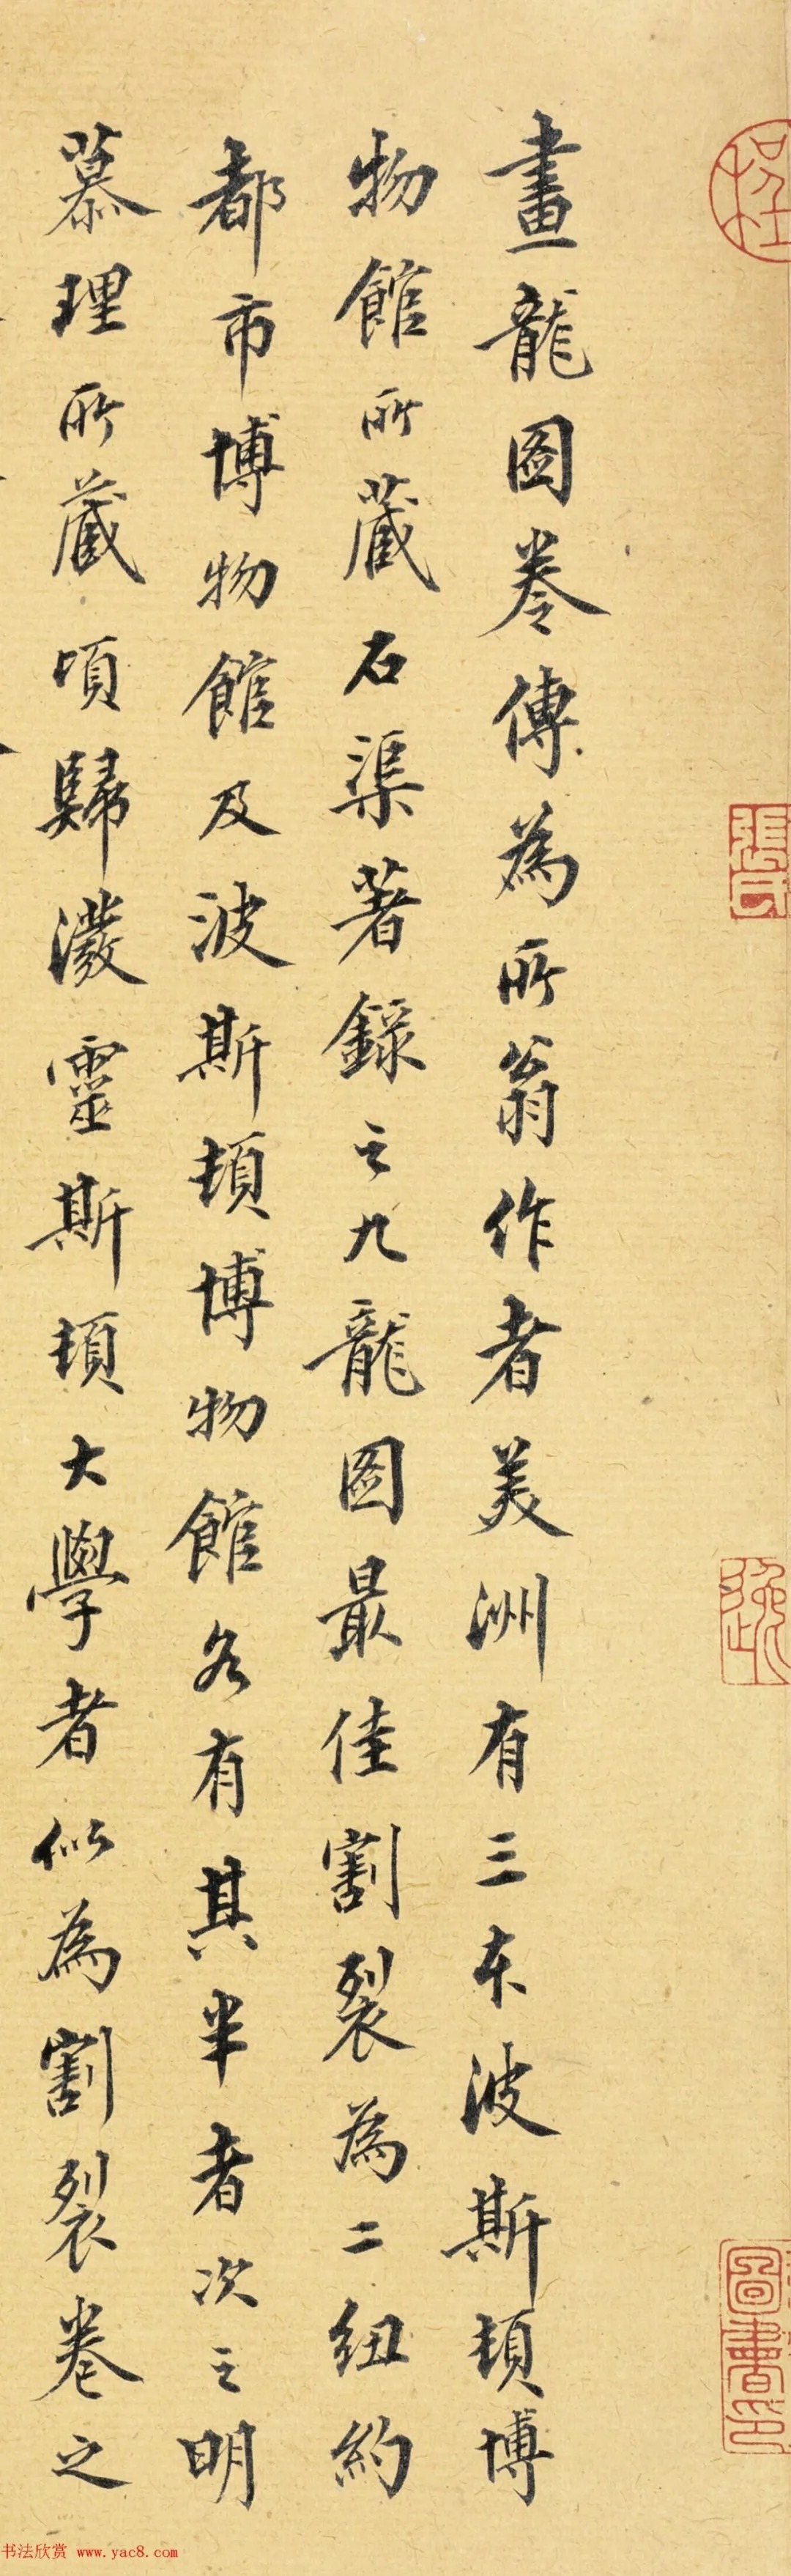 畫龍圖卷傳為所翁作者美洲有三本波斯頓博
物館所藏石渠著錄之九龍圖最佳割裂為二紐約
都市博物館及波斯頓博物館各有其半者次之明
慕理所藏頃歸潑靈斯頓大學者似為割裂卷之
張氏
圖書印
书法欣赏 www.yac8.com